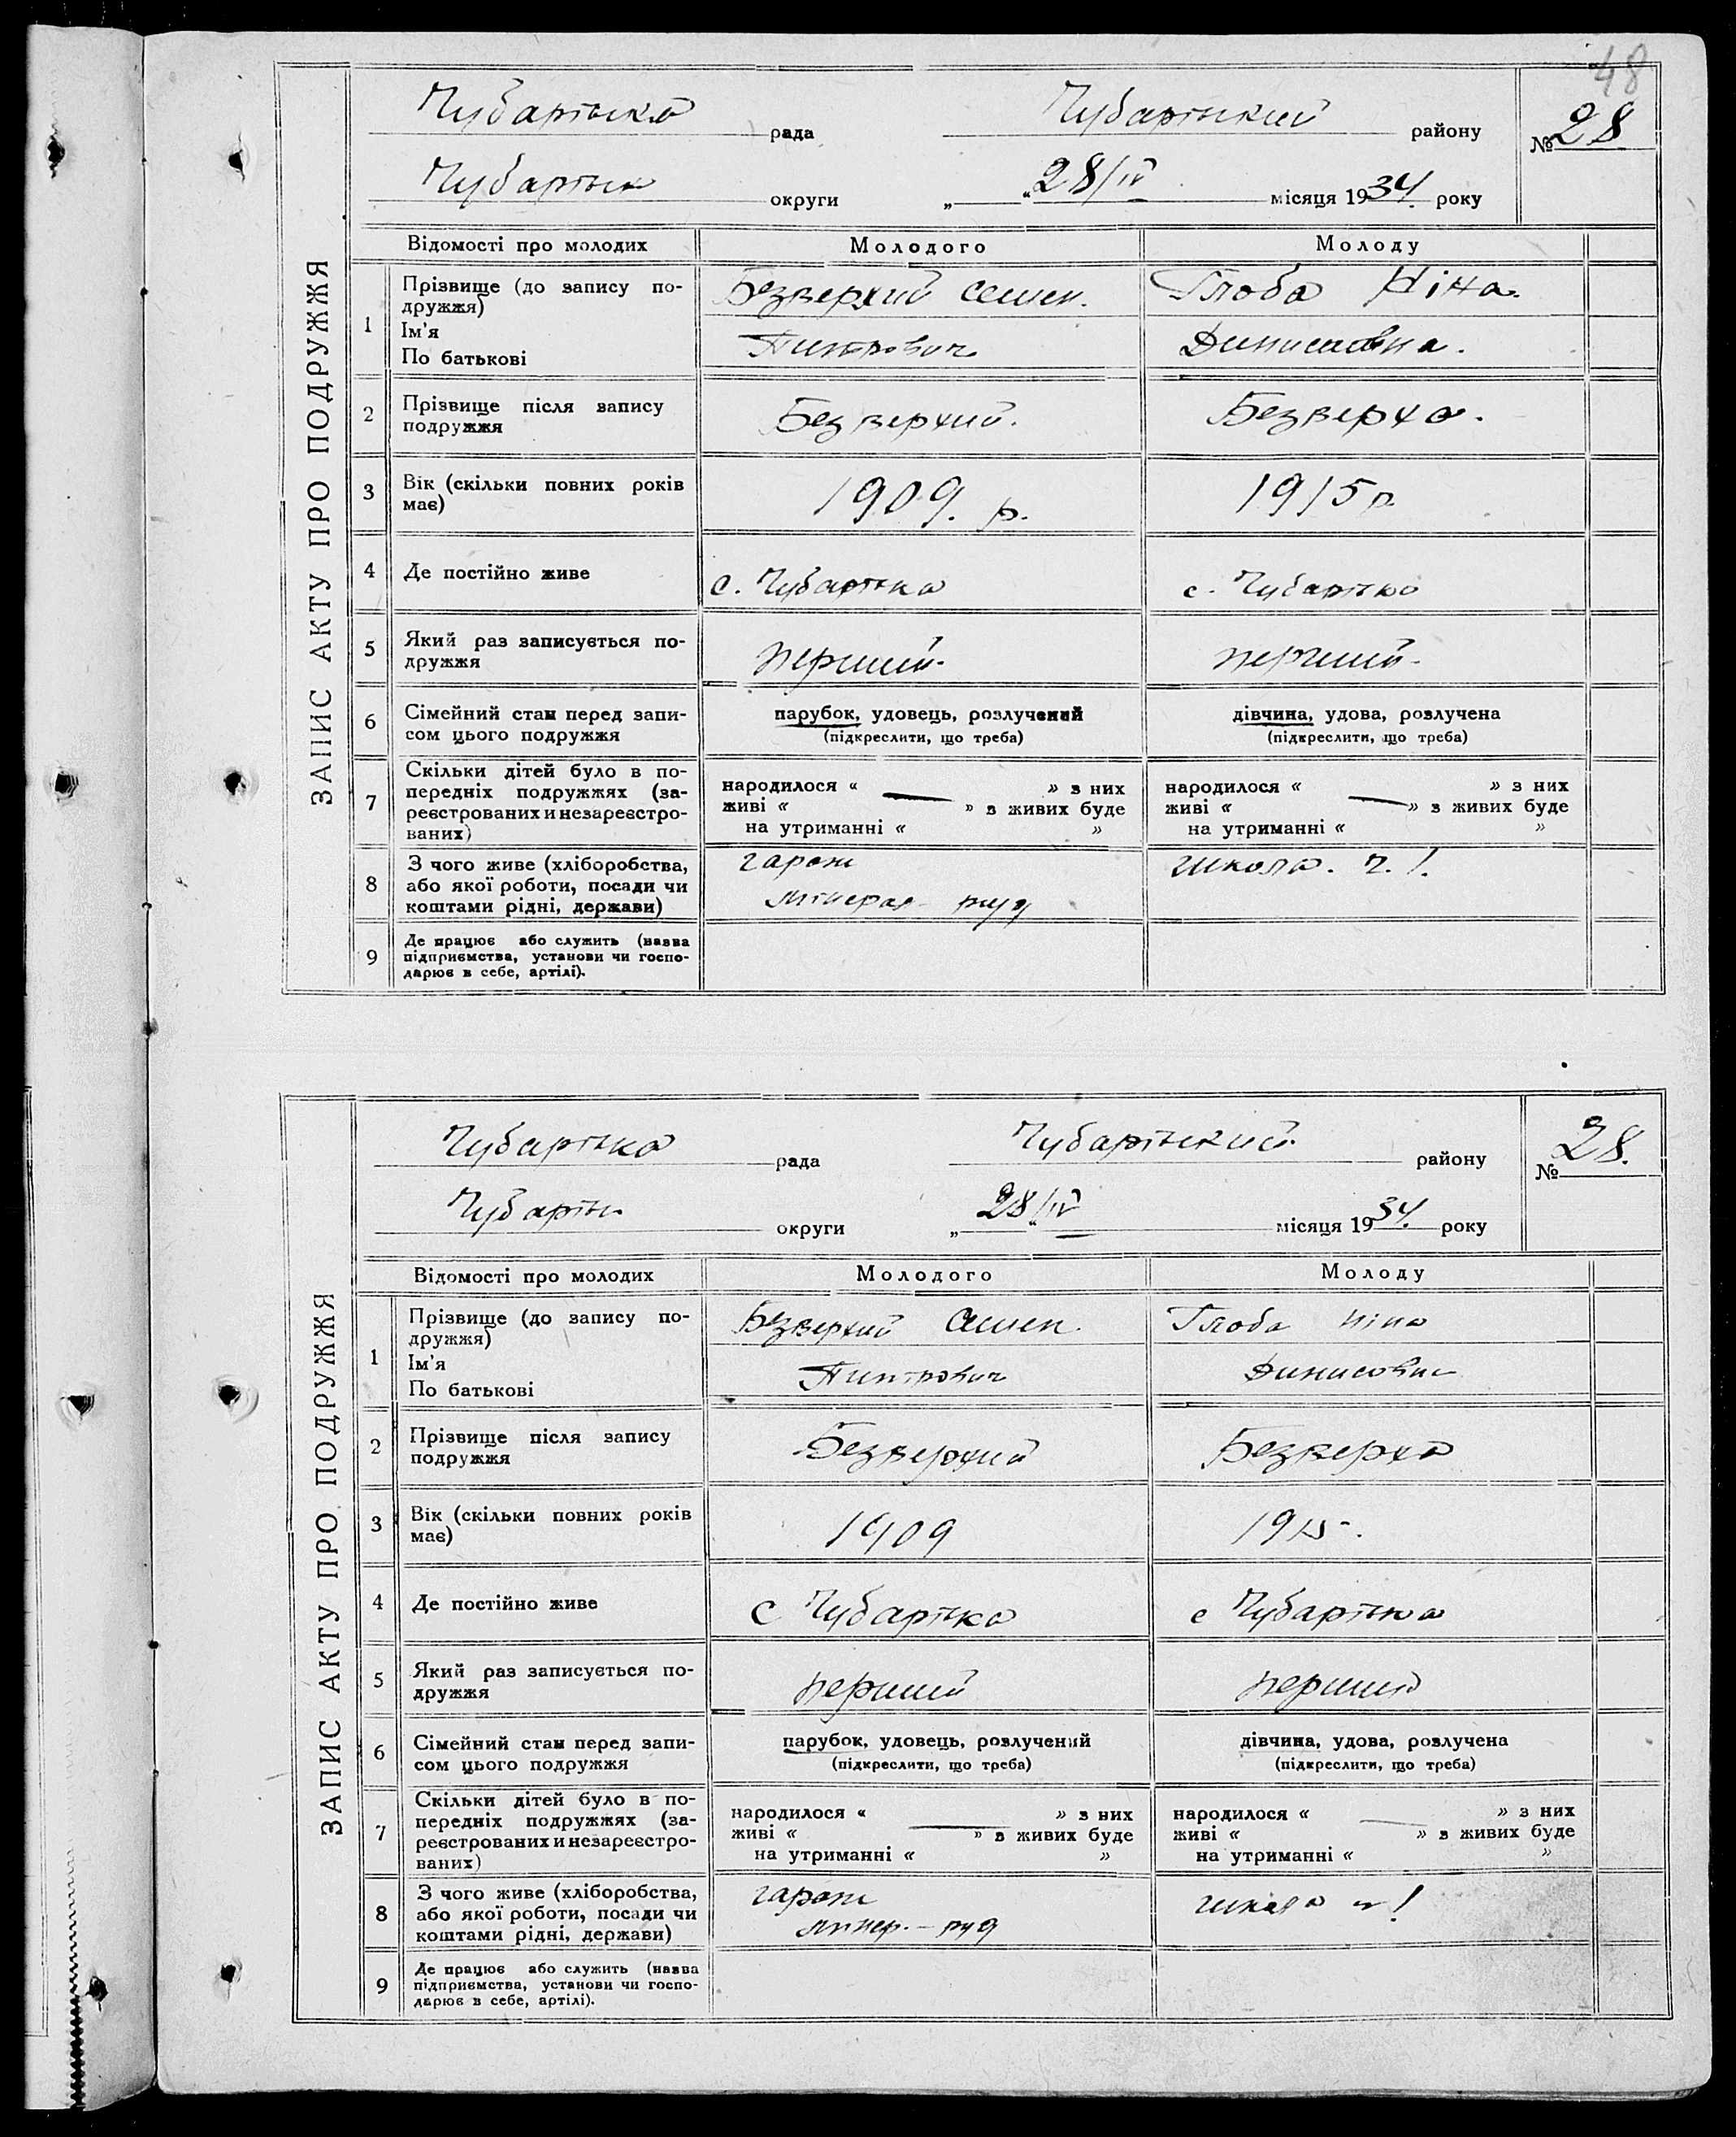 48
Чубарівка рада Чубарівский району № 28
Чубарівк округи „ “ 28/IV місяця 1934. року
ЗАПИС АКТУ ПРО ПОДРУЖЖЯ
Відомості про молодих Молодого Молоду
1 Прізвище (до запису по-
дружжя)
Ім'я
По батькові
Безверхий Семен. Глоба Ніна.
Питрович Динисовна.
2 Прізвище після запису
подружжя
Безверхий. Безверха.
3 Вік (скільки повних років
має)
1909. р. 1915 р
4 Де постійно живе с. Чубарівка с. Чубарівка
5 Який раз записується по-
дружжя
перший. перший.
6 Сімейний стан перед запи-
сом цього подружжя
парубок, удовець, розлучений дівчина, удова, розлучена
(підкреслити, що треба) (підкреслити, що треба)
7 Скільки дітей було в по-
передніх подружжях (за-
реєстрованих и незареєстро-
ваних)
народилося « » з них народилося « » з них
живі « — » з живих буде живі « — » з живих буде
на утриманні « » на утриманні « »
8 З чого живе (хліборобства,
або якої роботи, посади чи
коштами рідні, держави)
школа.
9 Де працює або служить (назва
підприємства, установи чи госпо-
дарює в себе, артілі).
Чубарівка рада Чубарівский. району № 28.
Чубарівк округи „ “ 28/IV місяця 1934. року
ЗАПИС АКТУ ПРО ПОДРУЖЖЯ
Відомості про молодих Молодого Молоду
1 Прізвище (до запису по-
дружжя)
Ім'я
По батькові
Безверхий Семен. Глоба Ніна
Питрович Динисовн
2 Прізвище після запису
подружжя
Безверхий Безверха
3 Вік (скільки повних років
має)
1909 1915.
4 Де постійно живе с Чубарівка с Чубарівка
5 Який раз записується по-
дружжя
перший перший
6 Сімейний стан перед запи-
сом цього подружжя
парубок, удовець, розлучений дівчина, удова, розлучена
(підкреслити, що треба) (підкреслити, що треба)
7 Скільки дітей було в по-
передніх подружжях (за-
реєстрованих и незареєстро-
ваних)
народилося « » з них народилося « » з них
живі « — » з живих буде живі « — » з живих буде
на утриманні « » на утриманні « »
8 З чого живе (хліборобства,
або якої роботи, посади чи
коштами рідні, держави)
школа
9 Де працює або служить (назва
підприємства, установи чи госпо-
дарює в себе, артілі).